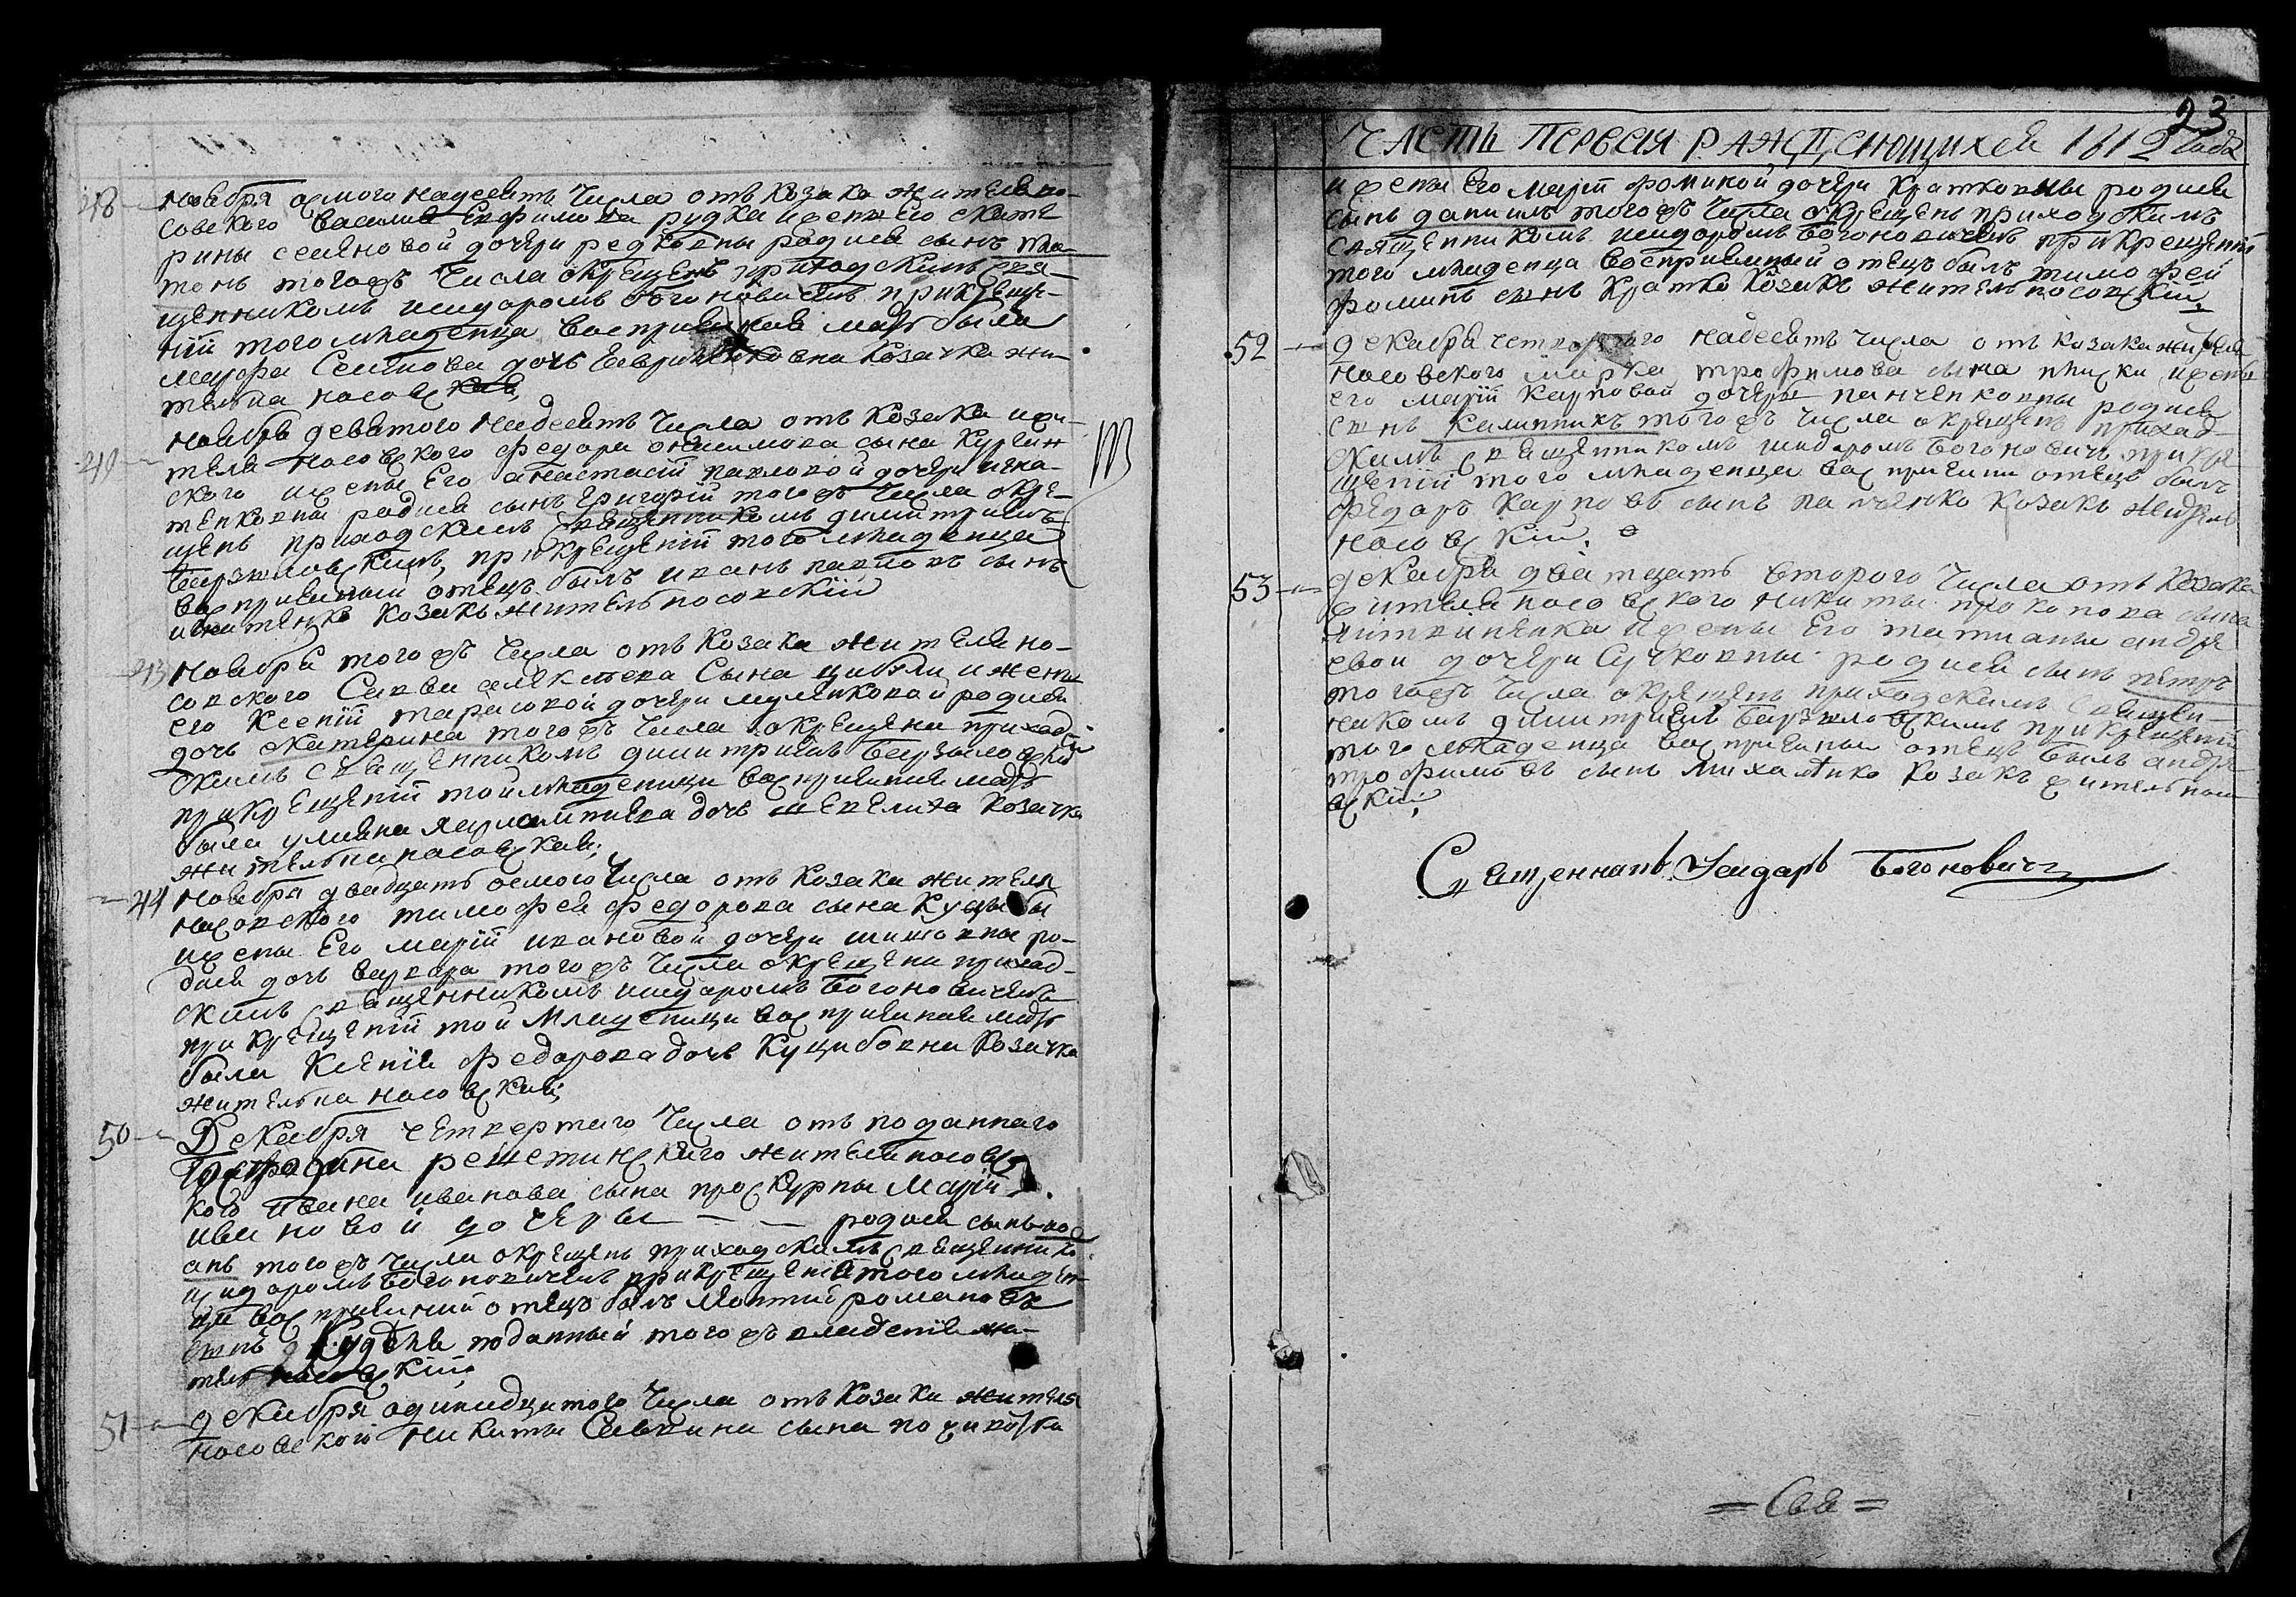 48 Ноября осмого надесять числа отъ козака жителя но-
совского василия Ефимова рудка и жены Его екате
рины семеновой дочери редковны родися сынъ пла-
тонъ тогожъ числа окрещенъ приходскимъ свя-
щенникомъ исидоромъ богоновичемъ при креще-
ній того младенца восприемная мать была
марфа Семенова дочь козачка жи-
тельна носовская
49 Ноября девятого надесять числа отъ козака и жи-
теля носовского федора онисимова сына
ского и жены Его анастасій павловой дочери игна-
тенковны родися сынъ Григорій тогожъ числа окре-
щенъ приходскимъ священникомъ димитриемъ
барзиловскимъ, при крещеній того младенца
восприемный отецъ былъ иванъ павловъ сынъ
игнатенко козакъ житель носовскій
Ноября того жъ числа отъ козака жителя но-
совского Савви алексеева сына цибули и жены
его Ксеній тарасовой дочери муленковой родися
дочь екатерина того жъ числа окрещена приход-
скимъ священникомъ димитриемъ барзиловски
при крещеній той младеници восприемная мать
была улияна дочь шевелиха козачка
жительна носовская;
44 Ноября двадцать осмого числа отъ козака жителя
носовского тимофея федорова сына куцибы
и жены Его марій ивановой дочери шишовны ро-
дися дочь варвара того жъ числа окрещена приход-
скимъ священникомъ исидоромъ богоновичемъ
при крещеній той младеници восприемная мать
была Ксенія федорова дочь Куцибовна козачка
жительна носовская;
50 Декабря четвертого числа отъ поданного
решетинского жителя носовс
кого ивана иванова сына проскурны марій
ивановой дочеры — — родися сынъ
анъ того жъ числа окрещенъ приходскимъ священнико
исидоромъ богоновичемъ при крещеній того младен-
ца восприемний отецъ былъ леонтий романовъ
сынъ поданный того жъ владения жи-
тель носовскій
51 декабря одинадцатого числа отъ козака жителя
носовского Никиты Саввина сына
23
ЧАСТЬ ПЕРВАЯ РАЖДАЮЩИХСЯ 1812 года
и жены Его марій фоминой дочери кратковны родися
сынъ даниилъ того жъ числа окрещенъ приходскимъ
священникомъ исидоромъ богоновичемъ при крещеній
того младенца восприемный отецъ былъ тимофей
фоминъ сынъ кратко козакъ житель носовскій
52 декабря четвертого надесять числа отъ козака жителя
носовского марка трофимова сына и жены
его марій карповой дочеры панченковны родися
сынъ калинникъ того жъ числа окрещенъ приход-
скимъ священникомъ исидоромъ богоновичъ при кре
щеній того младенца восприемн отецъ былъ
федоръ карповъ сынъ панченко козакъ житель
носовскій.
53 декабря дватцать второго числа отъ козака
жителя носовского никиты прокопова сына
и жены Его татианы андре
евой дочери сучковны родися сынъ петръ
того жъ числа окрещенъ приходскимъ священ-
никомъ димитриемъ барзиловскимъ при крещеній
того младенца восприемный отецъ былъ андре
трофимовъ сынъ михаленко козакъ житель носо
вскій;
Священникъ Исидоръ Богоновичъ